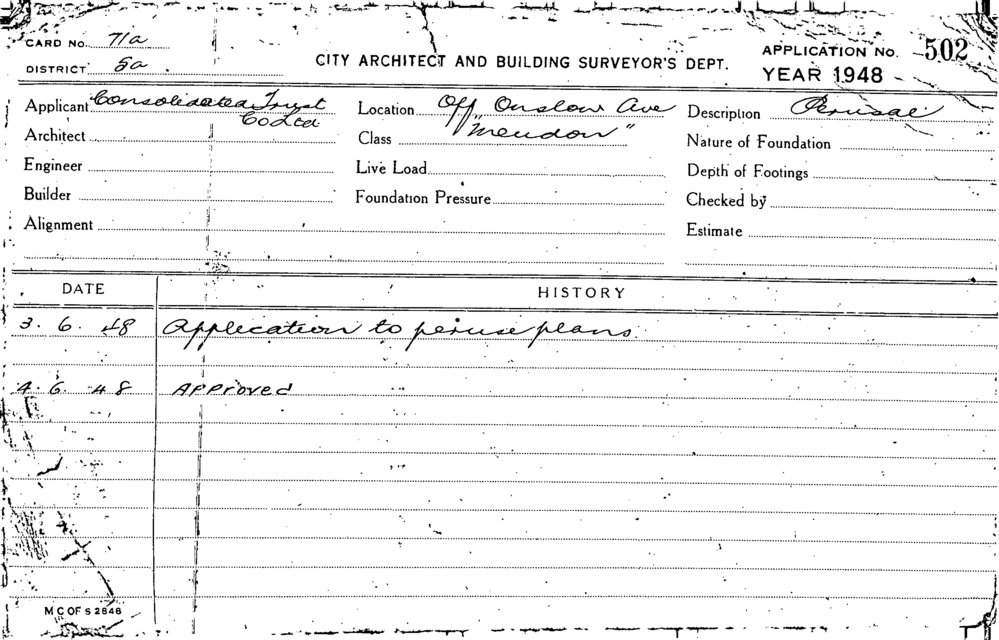 CARD No. 71a
DISTRICT 5a
CITY ARCHITECT AND BUILDING SURVEYOR'S DEPT.
APPLICATION No. 502
YEAR 1948
Applicant Consolidated Trust
Co Ltd
Architect
Engineer
Builder
Alignment
Location Off Onslow Ave
"Meudon"
Class
Live Load
Foundation Pressure
Description Perusal
Nature of Foundation
Depth of Footings
Checked by
Estimate
DATE HISTORY
3. 6. 48 Application to peruse plans.
4. 6. 48 Approved
M C OF S 2848